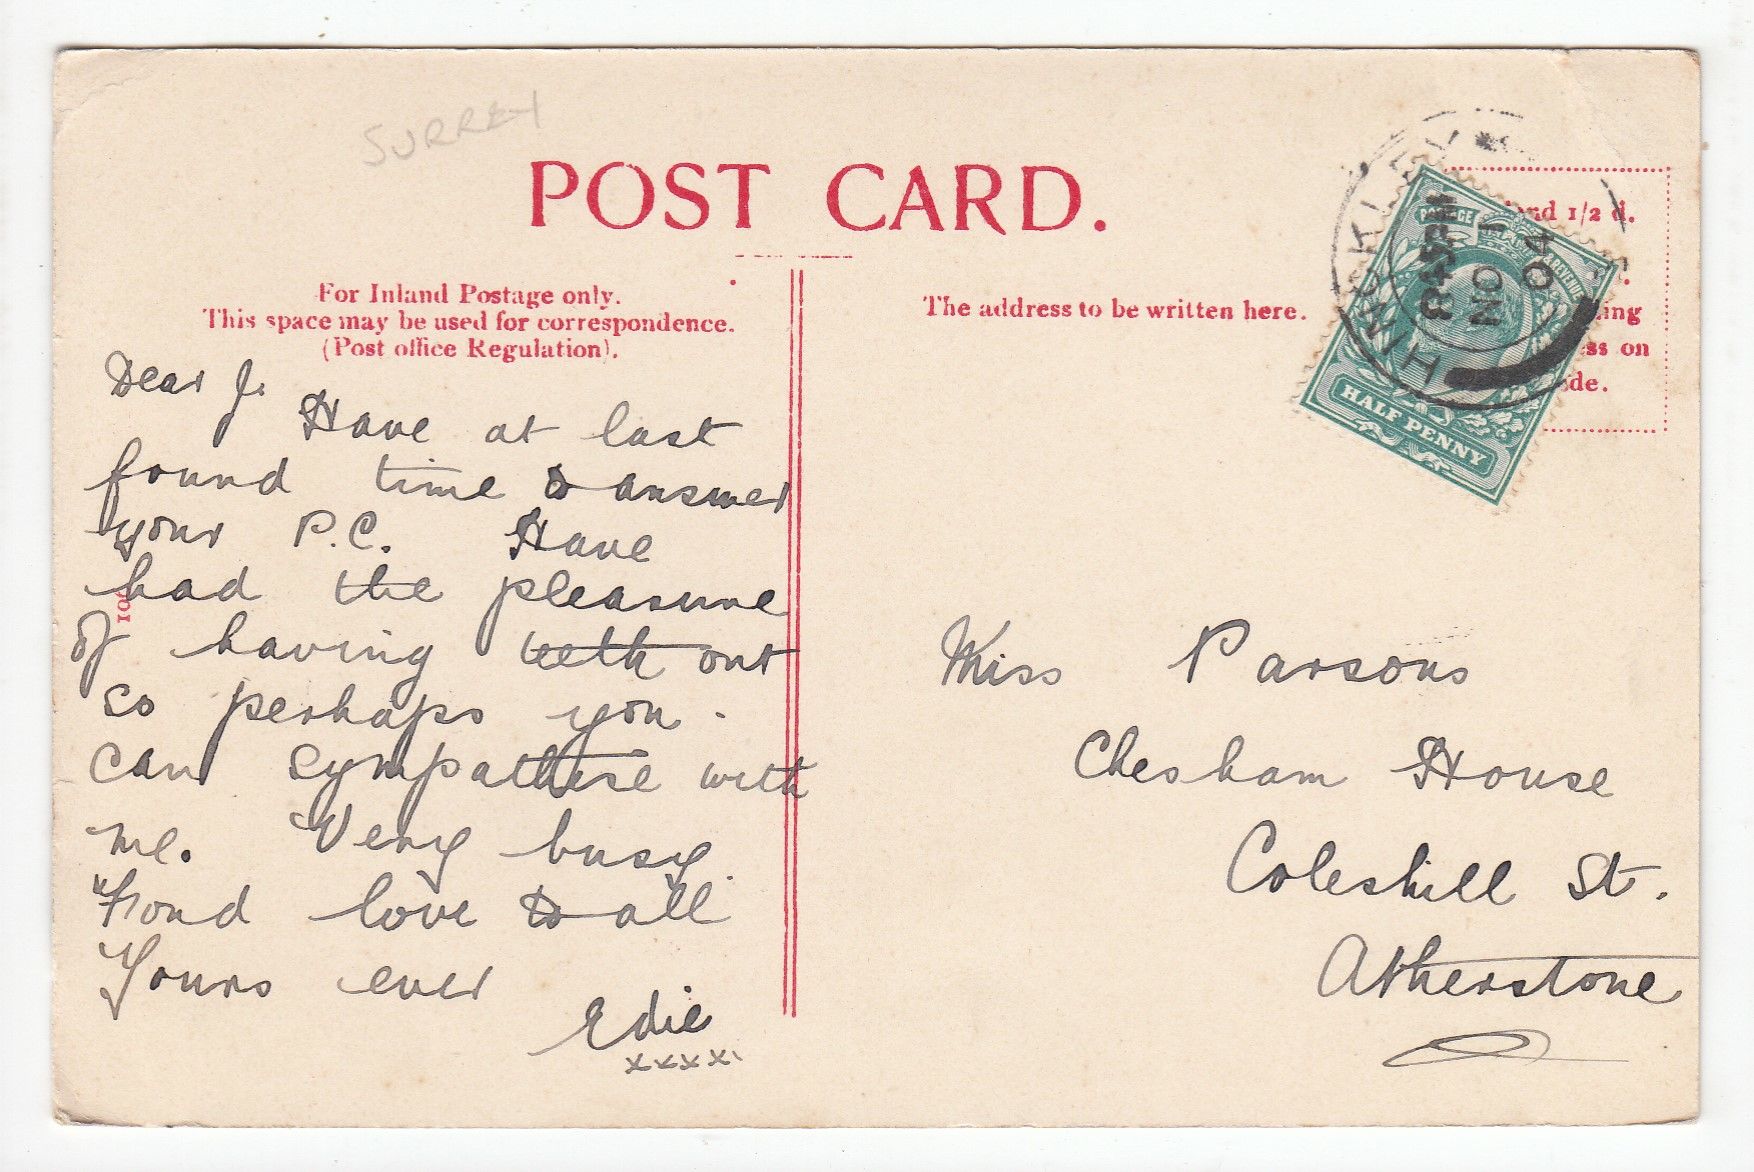 SURREY
POST CARD.
For Inland Postage only.
This space may be used for correspondence.
(Post office Regulation).
Dear J.
Have at last
found time to answer
your P.C. Have
had the pleasure
of having teeth out
so perhaps you
can sympathise with
me. Very busy.
Fond love to all
Yours ever
Edie
xxxxx
The address to be written here.
Inland 1/2 d.
ing
ss on
de.
HINCKLEY
8.45PM
NO 1
04
POSTAGE
& REVENUE
HALF PENNY
Miss Parsons
Chesham House
Coleshill St.
Atherstone